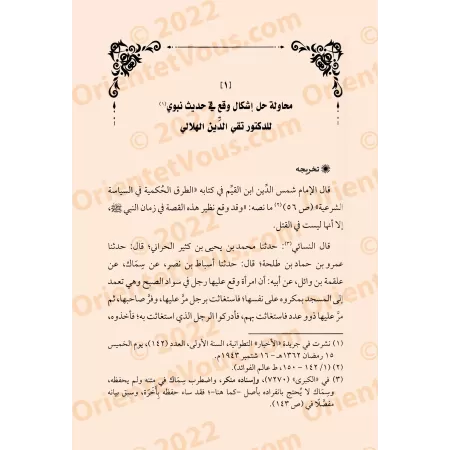 [١]
محاولة حل إشكال وقع في حديث نبوي(١)
للدكتور تقي الدِّين الهلالي
تخريجه
قال الإمام شمس الدَّين ابن القيَّم في كتابه «الطرق الحُكمية في السياسة
الشرعية» (ص ٥٦)(٢) ما نصه: «وقد وقع نظير هذه القصة في زمان النبي ﷺ،
إلا أنها ليست في القتل.
قال النسائي(٣): حدثنا محمد بن يحيى بن كثير الحراني؛ قال: حدثنا
عمرو بن حماد بن طلحة؛ قال: حدثنا أسباط بن نصر، عن سِمَاك، عن
علقمة بن وائل، عن أبيه: أن امرأة وقع عليها رجل في سواد الصبح وهي تعمد
إلى المسجد بمكروه على نفسها؛ فاستغاثت برجل مرَّ عليها، وفرَّ صاحبها، ثم
مرَّ عليها ذوو عدد فاستغاثت بهم، فأدركوا الرجل الذي استغاثت به؛ فأخذوه،
(١) نشرت في جريدة «الأخبار» التطوانية، السنة الأولى، العدد (١٤٢)، يوم الخميس
١٥ رمضان ١٣٦٢هـ - ١٦ شتنبر ١٩٤٣م.
(٢) (١/ ١٤٢ - ١٥٠، ط عالم الفوائد).
(٣) في «الكبرى» (٧٢٧٠)، وإسناده منكر، واضطرب سِمَاك في متنه ولم يحفظه،
وسِمَاك لا يُحتج بانفراده بأصل -كما هنا-؛ فقد ساء حفظه بِأَخَرَة، وسبق بيانه
مفصَّلًا في (ص ١٤٣).
© 2022
OrientetVous.com